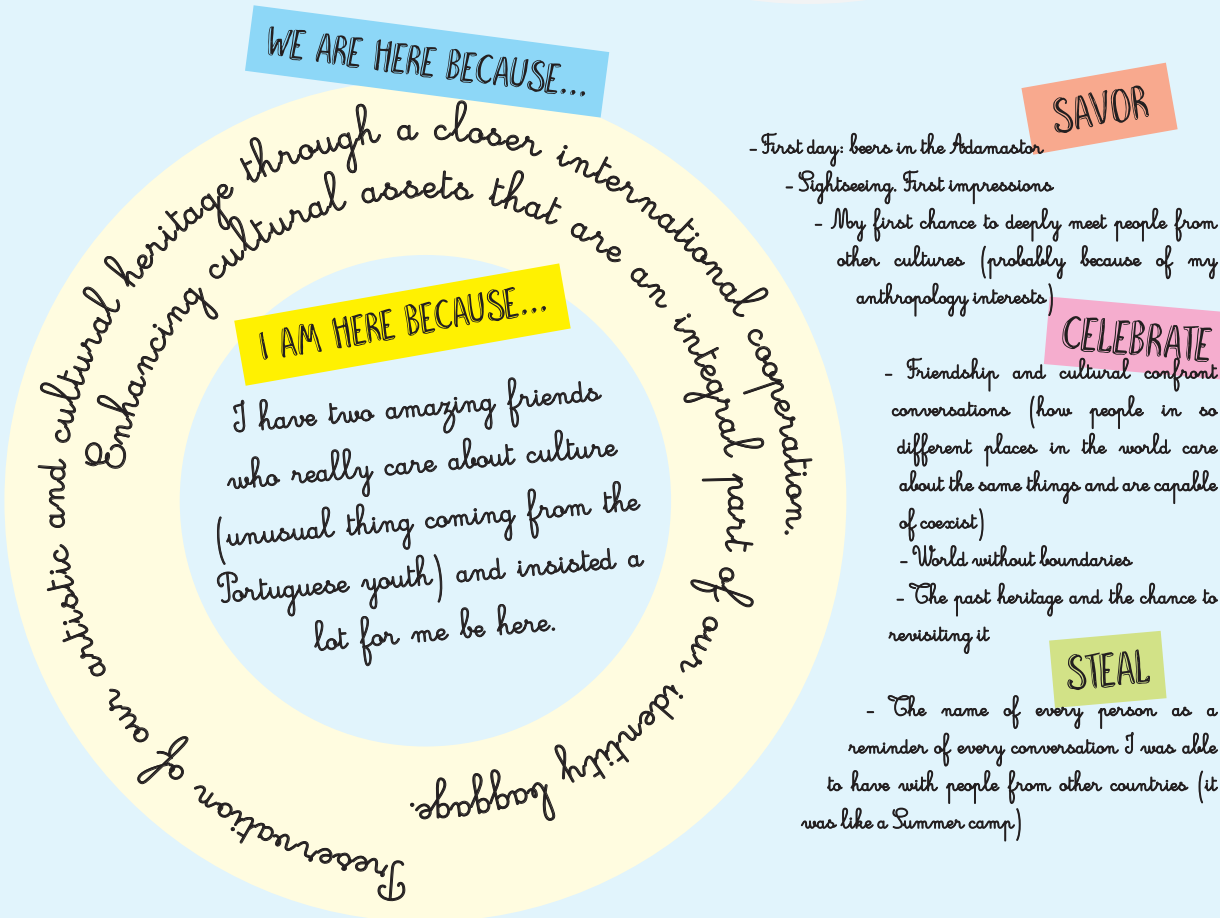 WE ARE HERE BECAUSE...
Preservation of our artistic and cultural heritage through a closer international cooperation.
Enhancing cultural assets that are an integral part of our identity baggage.
I AM HERE BECAUSE...
I have two amazing friends
who really care about culture
(unusual thing coming from the
Portuguese youth) and insisted a
lot for me be here.
SAVOR
- First day: beers in the Adamastor
- Sightseeing. First impressions
- My first chance to deeply meet people from
other cultures (probably because of my
anthropology interests)
CELEBRATE
- Friendship and cultural confront
conversations (how people in so
different places in the world care
about the same things and are capable
of coexist)
- World without boundaries
- The past heritage and the chance to
revisiting it
STEAL
- The name of every person as a
reminder of every conversation I was able
to have with people from other countries (it
was like a Summer camp)